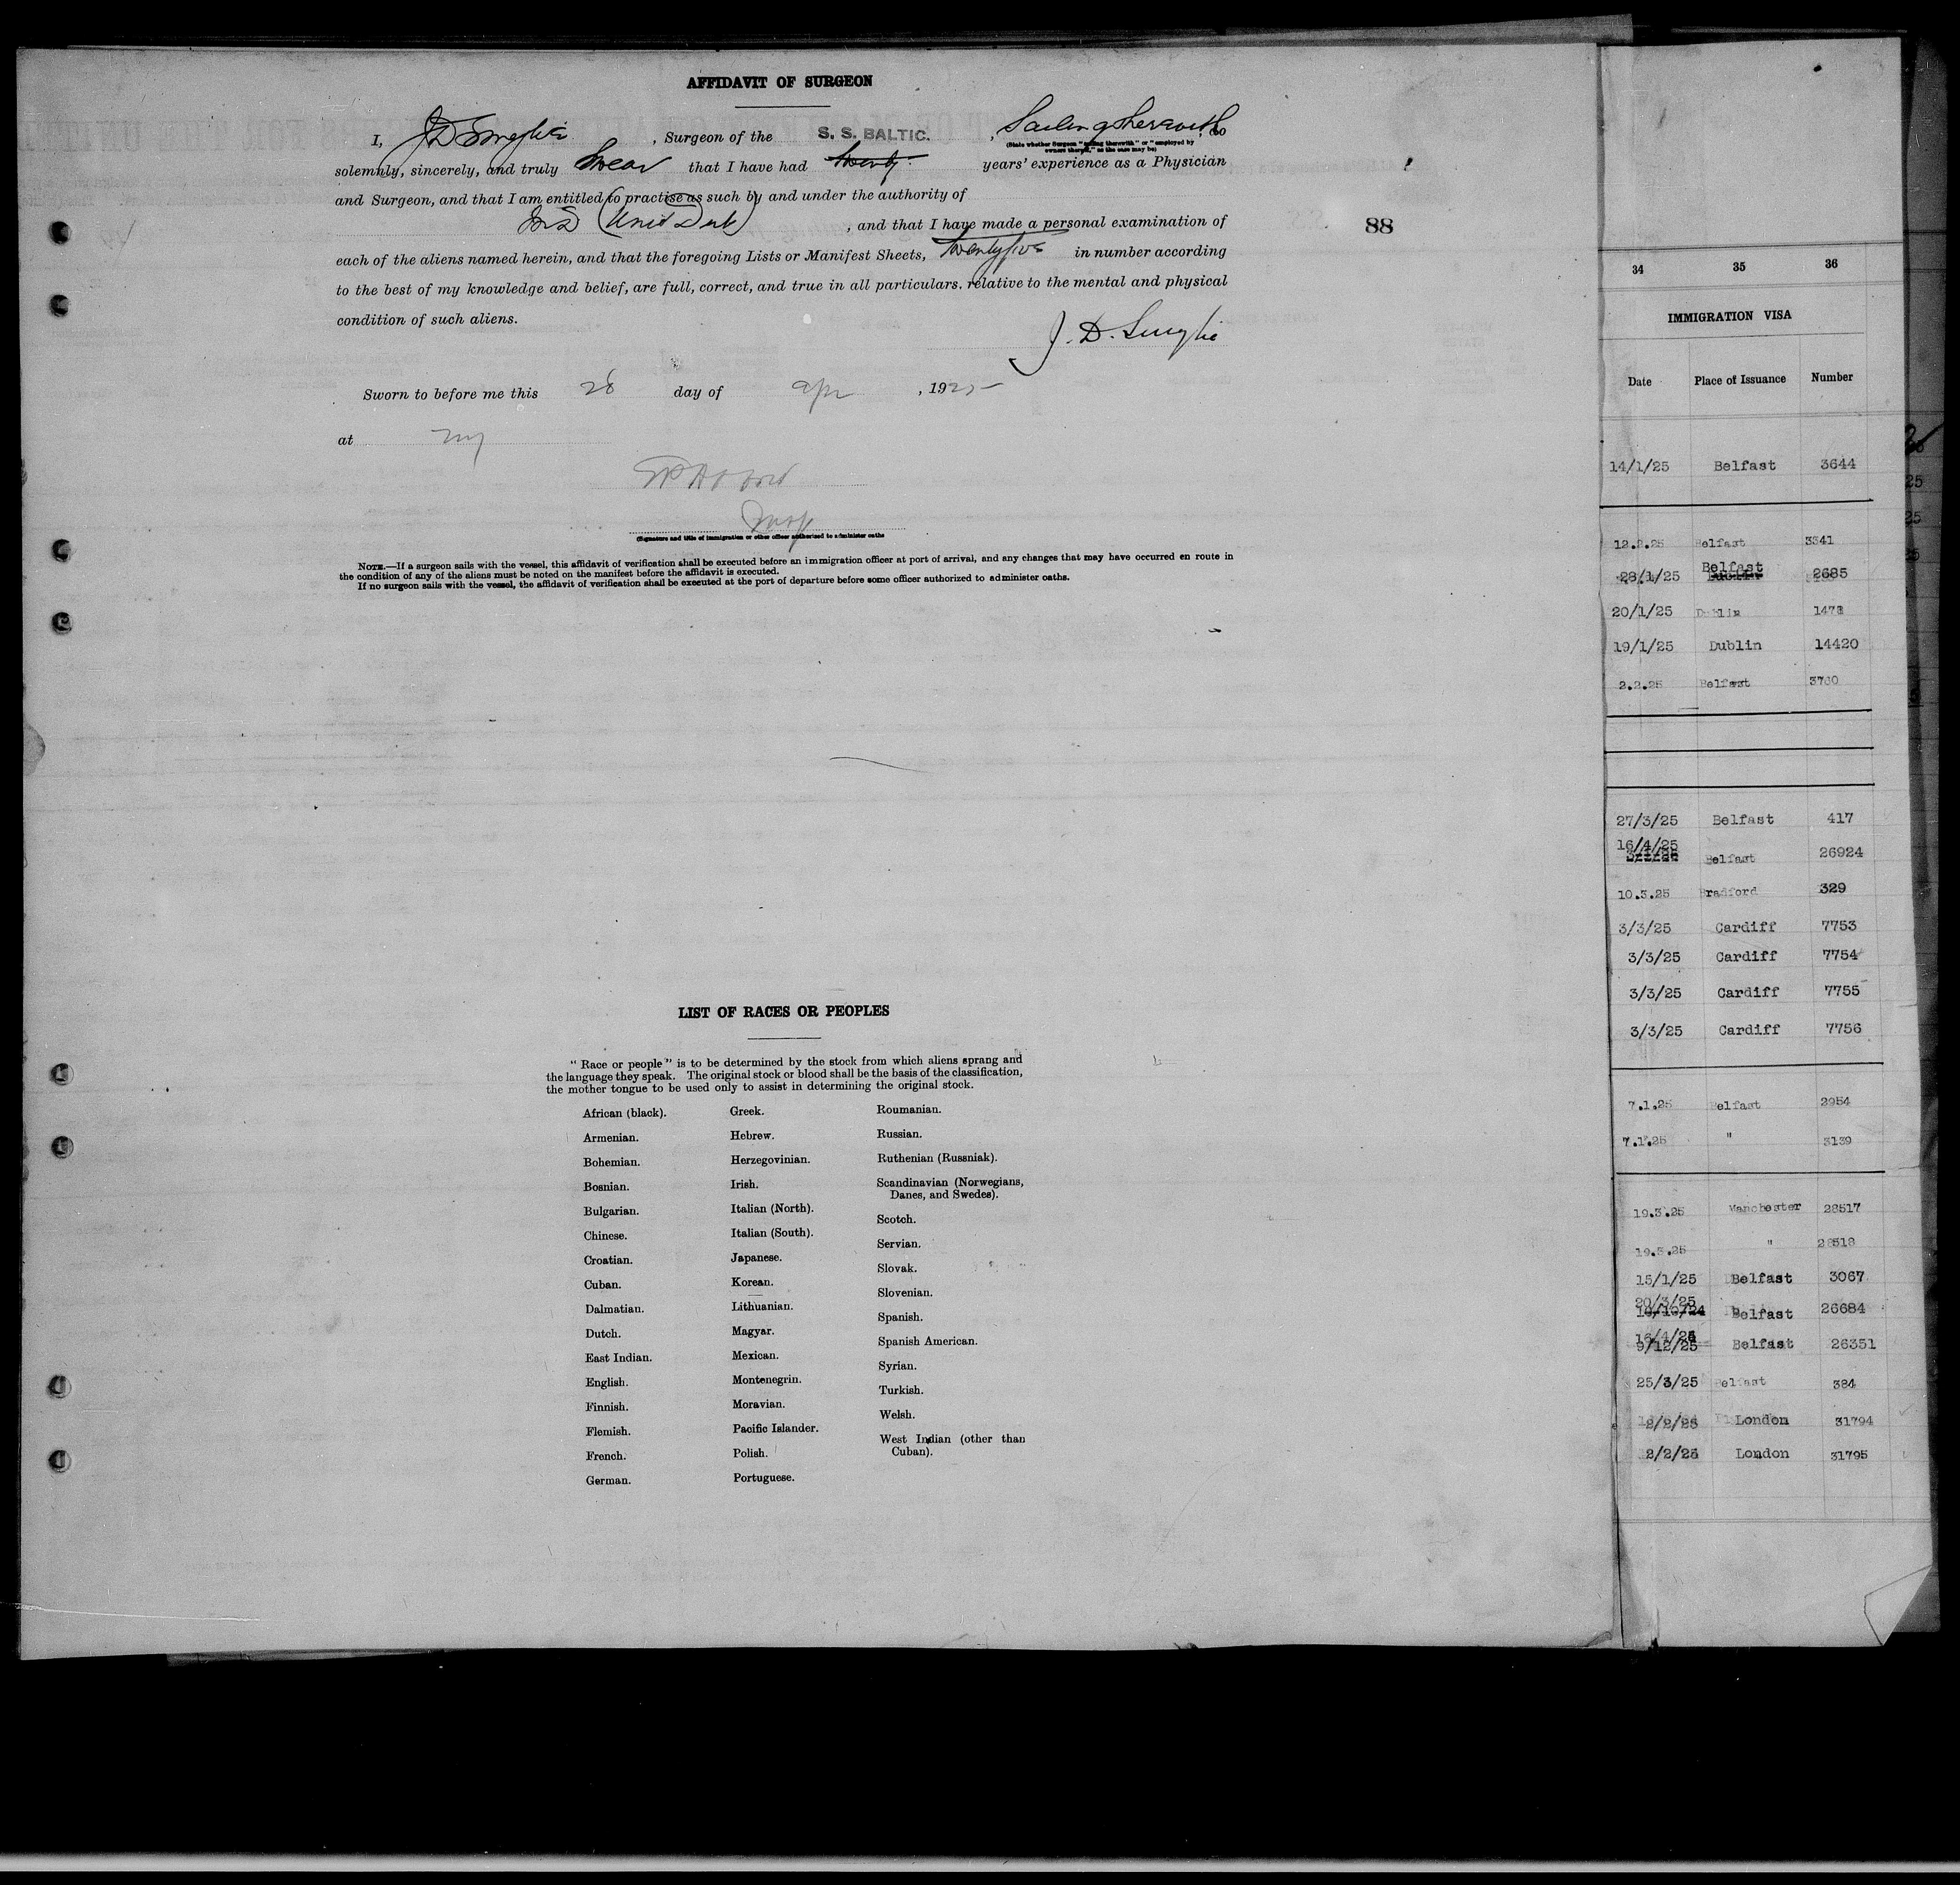 AFFIDAVIT OF SURGEON
I, , Surgeon of the S. S. BALTIC. , Sailing therewith , do
(State whether Surgeon "sailing therewith" or "employed by
owners thereof," as the case may be)
solemnly, sincerely, and truly Swear that I have had twenty years' experience as a Physician
and Surgeon, and that I am entitled to practise as such by and under the authority of
, and that I have made a personal examination of
88
each of the aliens named herein, and that the foregoing Lists or Manifest Sheets, twenty five in number according
to the best of my knowledge and belief, are full, correct, and true in all particulars. relative to the mental and physical
condition of such aliens.
J. D.
Sworn to before me this 28 day of apr , 1925
at ny
Insp
(Signature and title of immigration or other officer authorized to administer oaths
NOTE.—If a surgeon sails with the vessel, this affidavit of verification shall be executed before an immigration officer at port of arrival, and any changes that may have occurred en route in
the condition of any of the aliens must be noted on the manifest before the affidavit is executed.
If no surgeon sails with the vessel, the affidavit of verification shall be executed at the port of departure before some officer authorized to administer oaths.
LIST OF RACES OR PEOPLES
" Race or people " is to be determined by the stock from which aliens sprang and
the language they speak. The original stock or blood shall be the basis of the classification,
the mother tongue to be used only to assist in determining the original stock.
African (black).
Armenian.
Bohemian.
Bosnian.
Bulgarian.
Chinese.
Croatian.
Cuban.
Dalmatian.
Dutch.
East Indian.
English.
Finnish.
Flemish.
French.
German.
Greek.
Hebrew.
Herzegovinian.
Irish.
Italian (North).
Italian (South).
Japanese.
Korean.
Lithuanian.
Magyar.
Mexican.
Montenegrin.
Moravian.
Pacific Islander.
Polish.
Portuguese.
Roumanian.
Russian.
Ruthenian (Russniak).
Scandinavian (Norwegians,
Danes, and Swedes).
Scotch.
Servian.
Slovak.
Slovenian.
Spanish.
Spanish American.
Syrian.
Turkish.
Welsh.
West Indian (other than
Cuban).
34 35 36
IMMIGRATION VISA
Date Place of Issuance Number
14/1/25 Belfast 3644
12.2.25 Belfast 3341
28/1/25 Belfast 2685
20/1/25 Dublin
19/1/25 Dublin 14420
2.2.25 Belfast 3760
27/3/25 Belfast 417
16/4/25
Belfast 26924
10.3.25 Bradford 329
3/3/25 Cardiff 7753
3/3/25 Cardiff 7754
3/3/25 Cardiff 7755
3/3/25 Cardiff 7756
7.1.25 Belfast 2954
7.1.25 " 3139
19.3.25 Manchester 28517
19.3.25 " 28518
15/1/25 Belfast 3067
20/3/25
10/10/24 Belfast 26684
16/4/25
9/12/25 Belfast 26351
25/3/25 Belfast 384
2/2/25 London 31794
2/2/25 London 31795